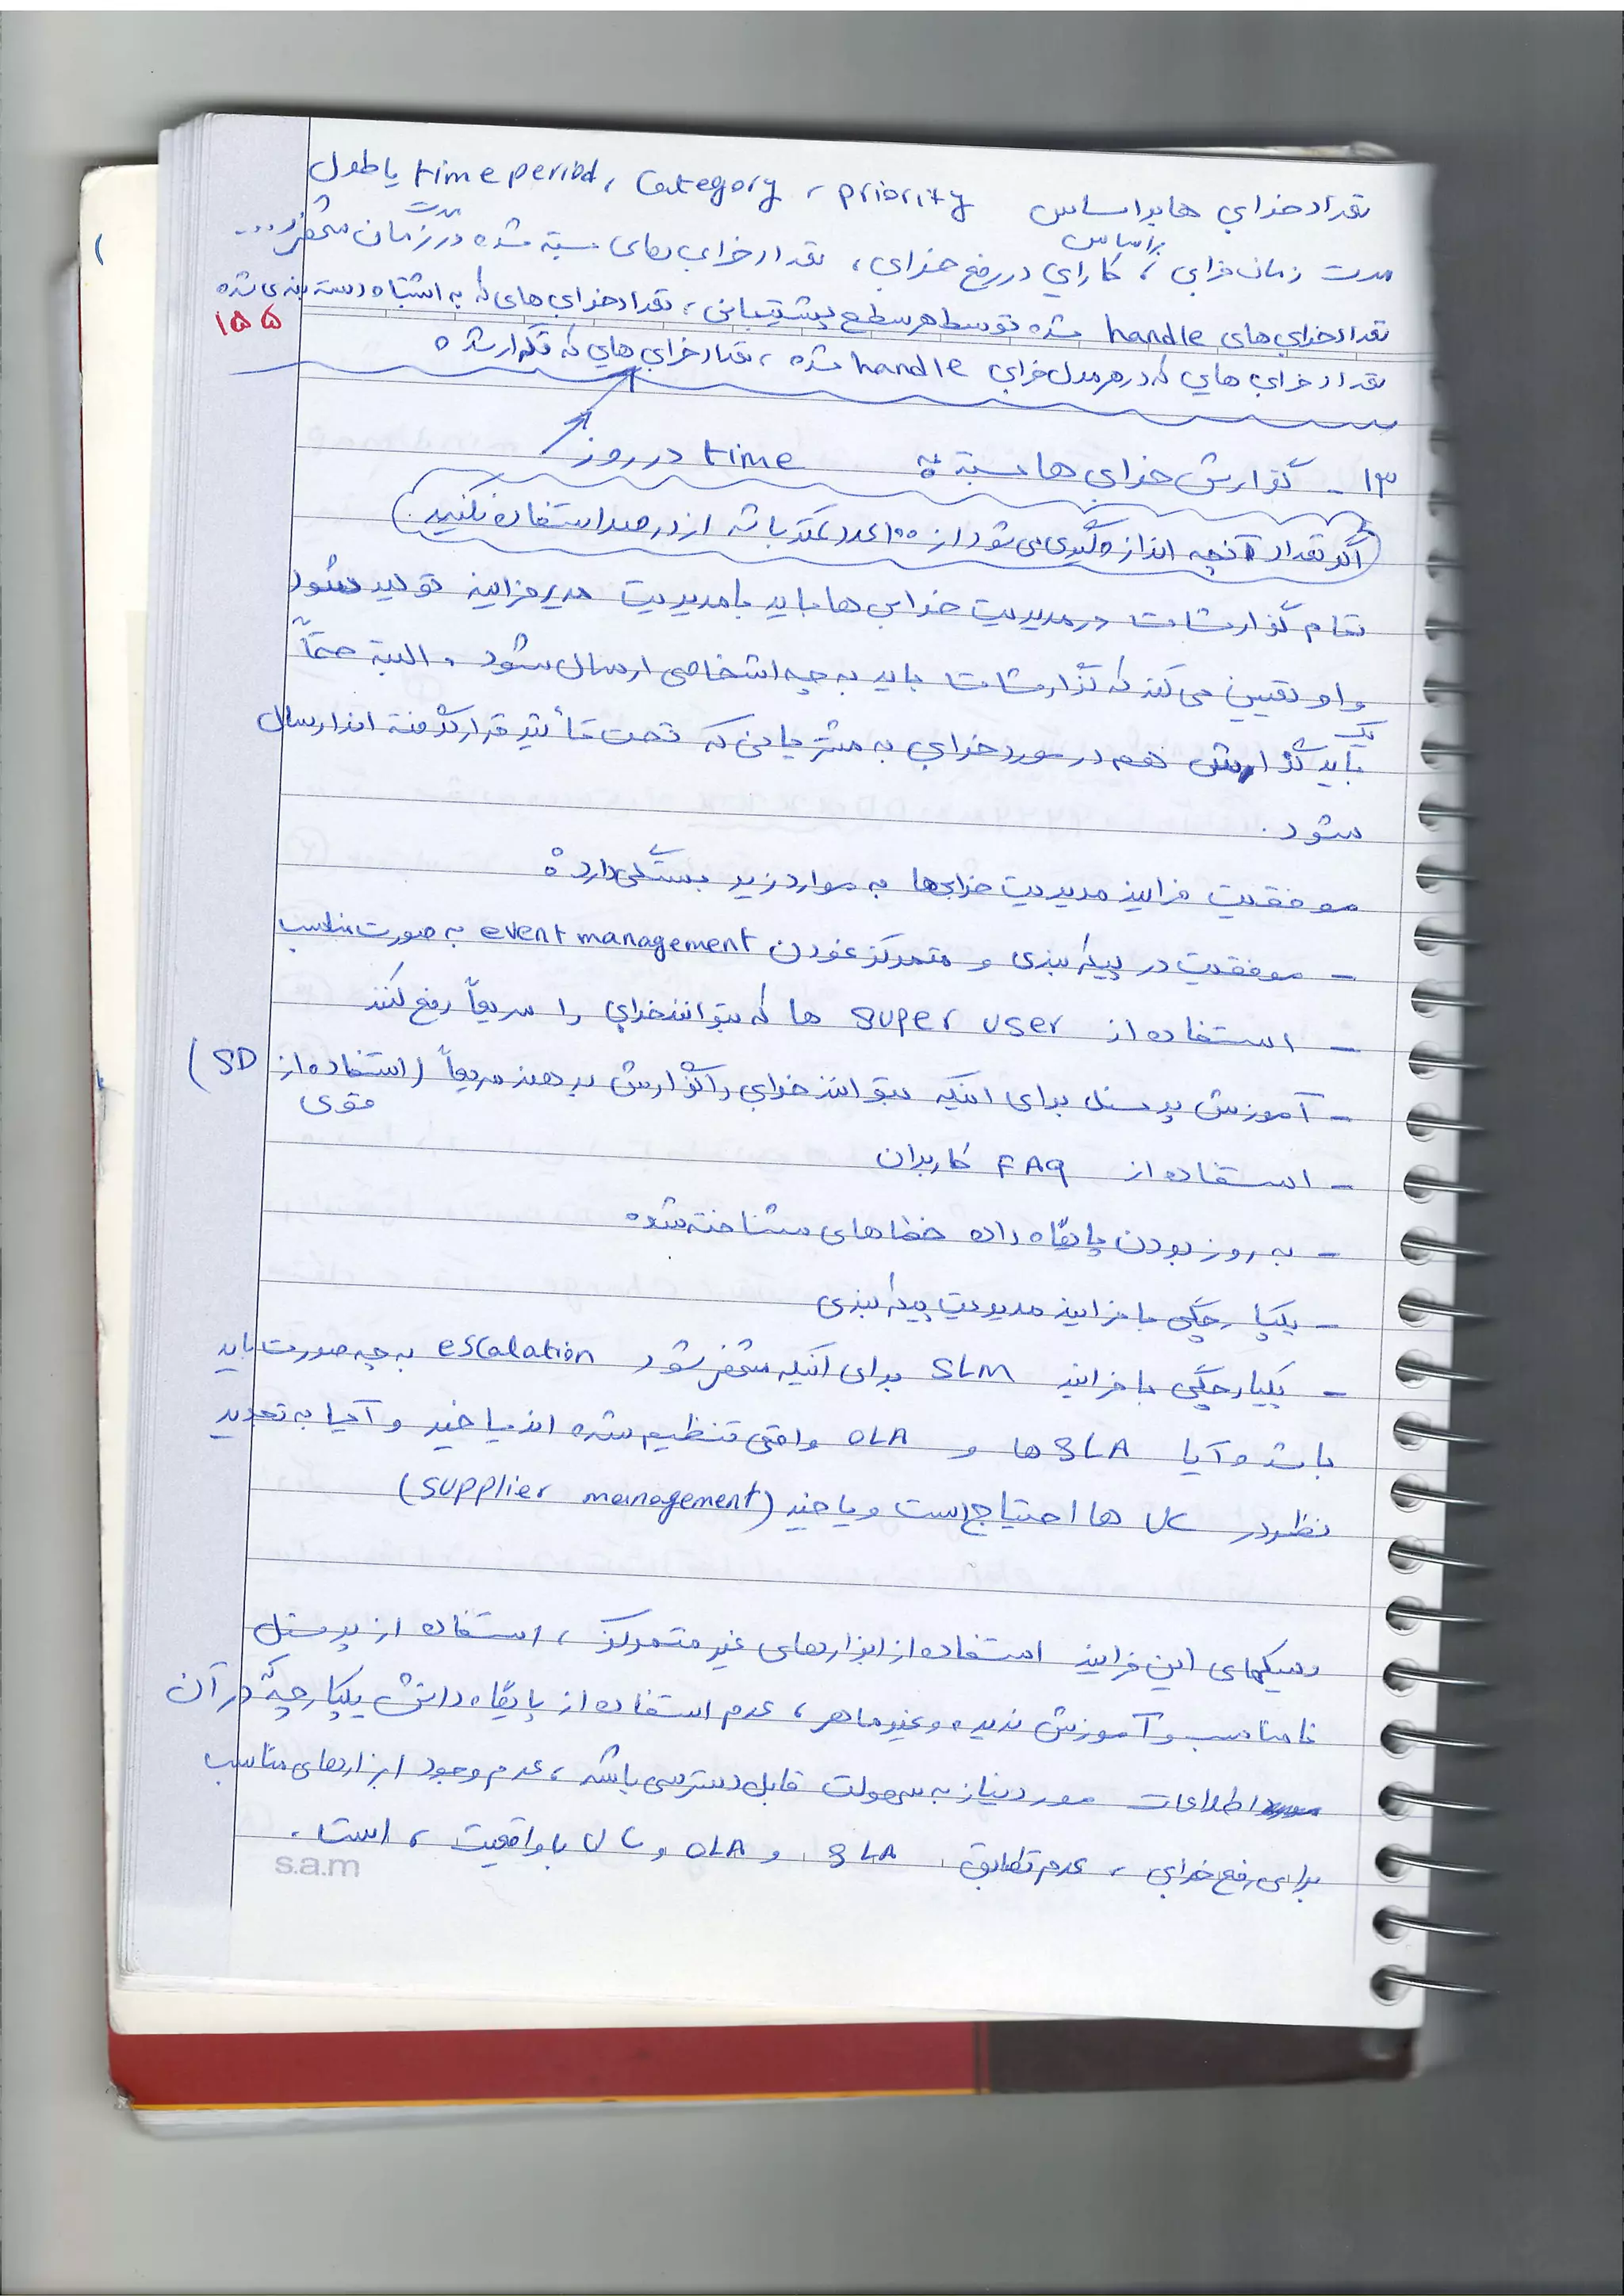 تعداد خرابی ها براساس priority ، category ، time period یا طول
مدت زمان خرابی ، کارایی در رفع خرابی براساس ، تعداد خرابی های بسته شده در مدت زمان مشخص ...
تعداد خرابی های handle شده توسط هر سطح پشتیبانی ، تعداد خرابی های که به اشتباه دسته بندی شده
۱۵۵
تعداد خرابی هایی که در هر مدل خرابی handle شده ، تعداد خرابی هایی که تکرار شده
۱۳ - گزارش خرابی ها بسته به time در روز
اگر تعداد آنچه اندازه گیری می شود از ۱۰۰ عدد کمتر باشه از درصد استفاده نکنید.
تمام گزارشات در مدیریت خرابی ها باید با مدیریت مدیر فرایند تولید شود
و او تعیین می کند که گزارشات باید به چه اشخاصی ارسال شود . البته حتماً
باید یک گزارش هم در مورد خرابی به مشتریانی که تحت تأثیر قرار گرفته اند ارسال
شود .
موفقیت فرایند مدیریت خرابی ها به موارد زیر بستگی دارد :
- موفقیت در پیکربندی و متمرکز نمودن event management به صورت مناسب
- استفاده از super user ها که بتوانند خرابی را سریعاً رفع کنند
- آموزش پرسنل برای اینکه بتوانند خرابی را گزارش بدهند سریعاً (استفاده از SD قوی)
- استفاده از FAQ کاربران
- به روز بودن پایگاه داده خطاهای شناخته شده
- یکپارچگی با فرایند مدیریت پیکربندی
- یکپارچگی با فرایند SLM برای آنکه مشخص شود escalation به چه صورت باید
باشد و آیا SLA ها و OLA واقعی تنظیم شده اند یا خیر و آیا به تجدید
نظر در UC ها احتیاج است و یا خیر (supplier management)
ریسکهای این فرایند استفاده از ابزارهای غیر متمرکز ، استفاده از پرسنل
نامناسب و آموزش ندیده و غیر ماهر ، عدم استفاده از پایگاه دانش یکپارچه که در آن
اطلاعات مورد نیاز به سهولت قابل دسترسی باشد ، عدم وجود ابزارهای مناسب
برای رفع خرابی ، عدم تطابق SLA و OLA و UC با واقعیت ، است .
s.a.m